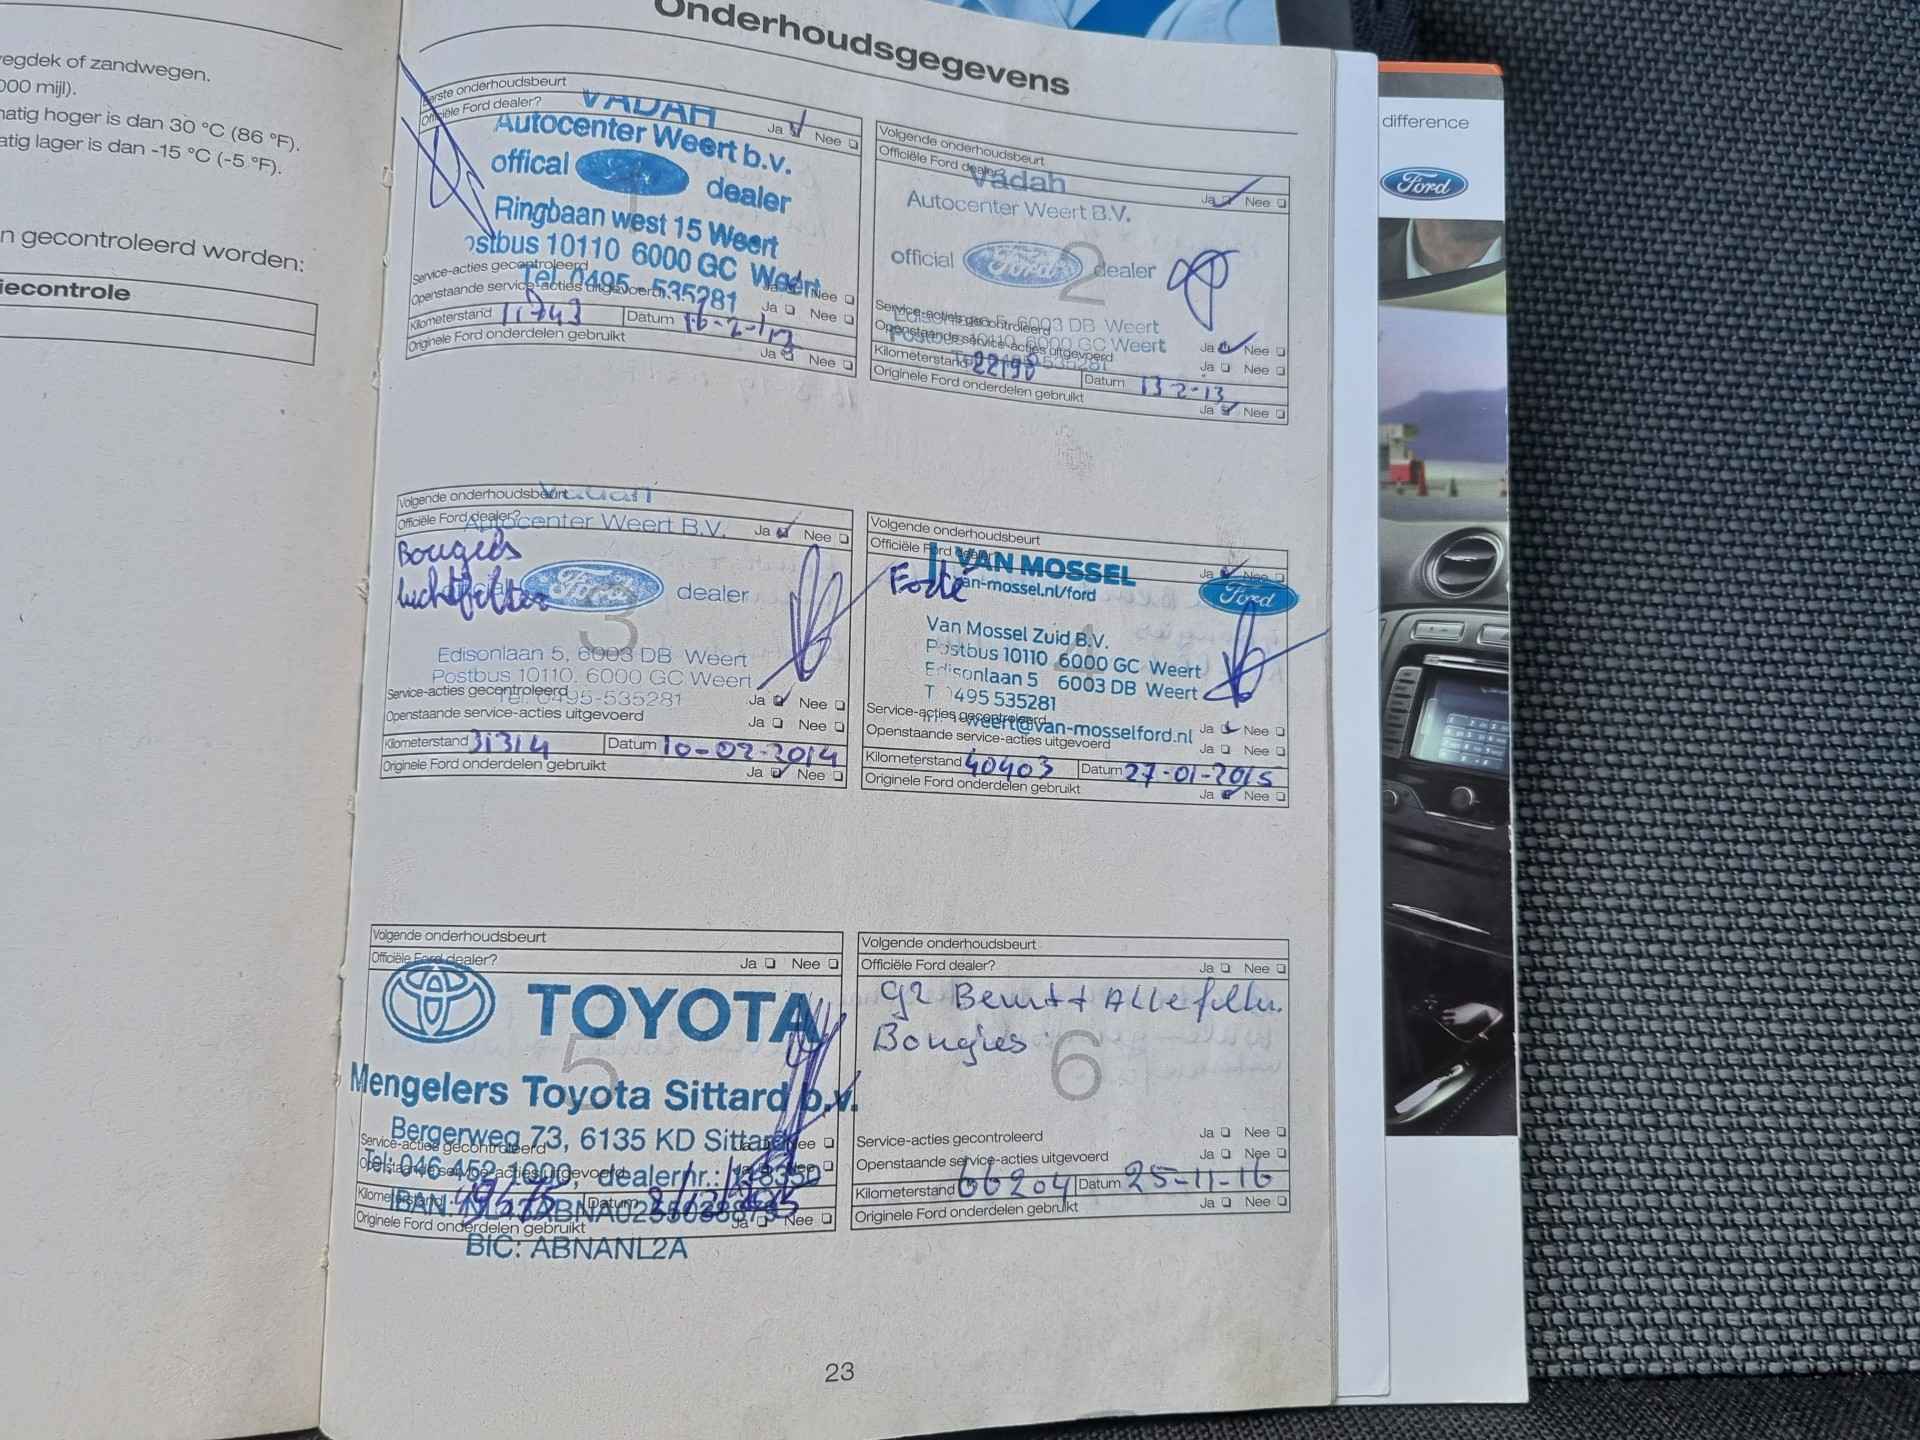 Onderhoudsgegevens
egdek of zandwegen.
000 mijl).
matig hoger is dan 30 °C (86 °F).
atig lager is dan -15 °C (-5 °F).
n gecontroleerd worden:
iecontrole
Eerste onderhoudsbeurt
Officiële Ford dealer? Ja Nee
VADAH
Autocenter Weert b.v.
offical dealer
Ringbaan west 15 Weert
ostbus 10110 6000 GC Weert
Tel. 0495 - 535281
Service-acties gecontroleerd Nee
Openstaande service-acties uitgevoerd Ja Nee
Kilometerstand 11743 Datum 16-2-
Originele Ford onderdelen gebruikt Ja Nee
Volgende onderhoudsbeurt
Officiële Ford dealer? Ja Nee
Vadah
Autocenter Weert B.V.
official Ford dealer
2
Edisonlaan 5, 6003 DB Weert
Postbus 10110, 6000 GC Weert
535281
Service-acties gecontroleerd Ja Nee
Openstaande service-acties uitgevoerd Ja Nee
Kilometerstand 22198 Datum 13-2-13
Originele Ford onderdelen gebruikt Ja Nee
Volgende onderhoudsbeurt
Officiële Ford dealer? Ja Nee
Vadah
Autocenter Weert B.V.
Bougies
luchtfilter
Ford dealer
3
Edisonlaan 5, 6003 DB Weert
Postbus 10110, 6000 GC Weert
Tel. 0495-535281
Service-acties gecontroleerd Ja Nee
Openstaande service-acties uitgevoerd Ja Nee
Kilometerstand 31314 Datum 10-02-2014
Originele Ford onderdelen gebruikt Ja Nee
Volgende onderhoudsbeurt
Officiële Ford dealer Ja Nee
VAN MOSSEL
van-mossel.nl/ford
Ford
Forté
Van Mossel Zuid B.V.
Postbus 10110 6000 GC Weert
4
Edisonlaan 5 6003 DB Weert
T 0495 535281
weert@van-mosselford.nl
Service-acties gecontroleerd Ja Nee
Openstaande service-acties uitgevoerd Ja Nee
Kilometerstand 40403 Datum 27-01-2015
Originele Ford onderdelen gebruikt Ja Nee
Volgende onderhoudsbeurt
Officiële Ford dealer? Ja Nee
TOYOTA
5
Mengelers Toyota Sittard b.v.
Bergerweg 73, 6135 KD Sittard
Tel: 046 452 1000, dealernr.:
IBAN:
BIC: ABNANL2A
Service-acties gecontroleerd Nee
Openstaande service-acties uitgevoerd
Kilometerstand Datum
Originele Ford onderdelen gebruikt Ja Nee
Volgende onderhoudsbeurt
Officiële Ford dealer? Ja Nee
Beurt + Alle
Bougies
6
Service-acties gecontroleerd Ja Nee
Openstaande service-acties uitgevoerd Ja Nee
Kilometerstand 66204 Datum 25-11-16
Originele Ford onderdelen gebruikt Ja Nee
23
difference
Ford